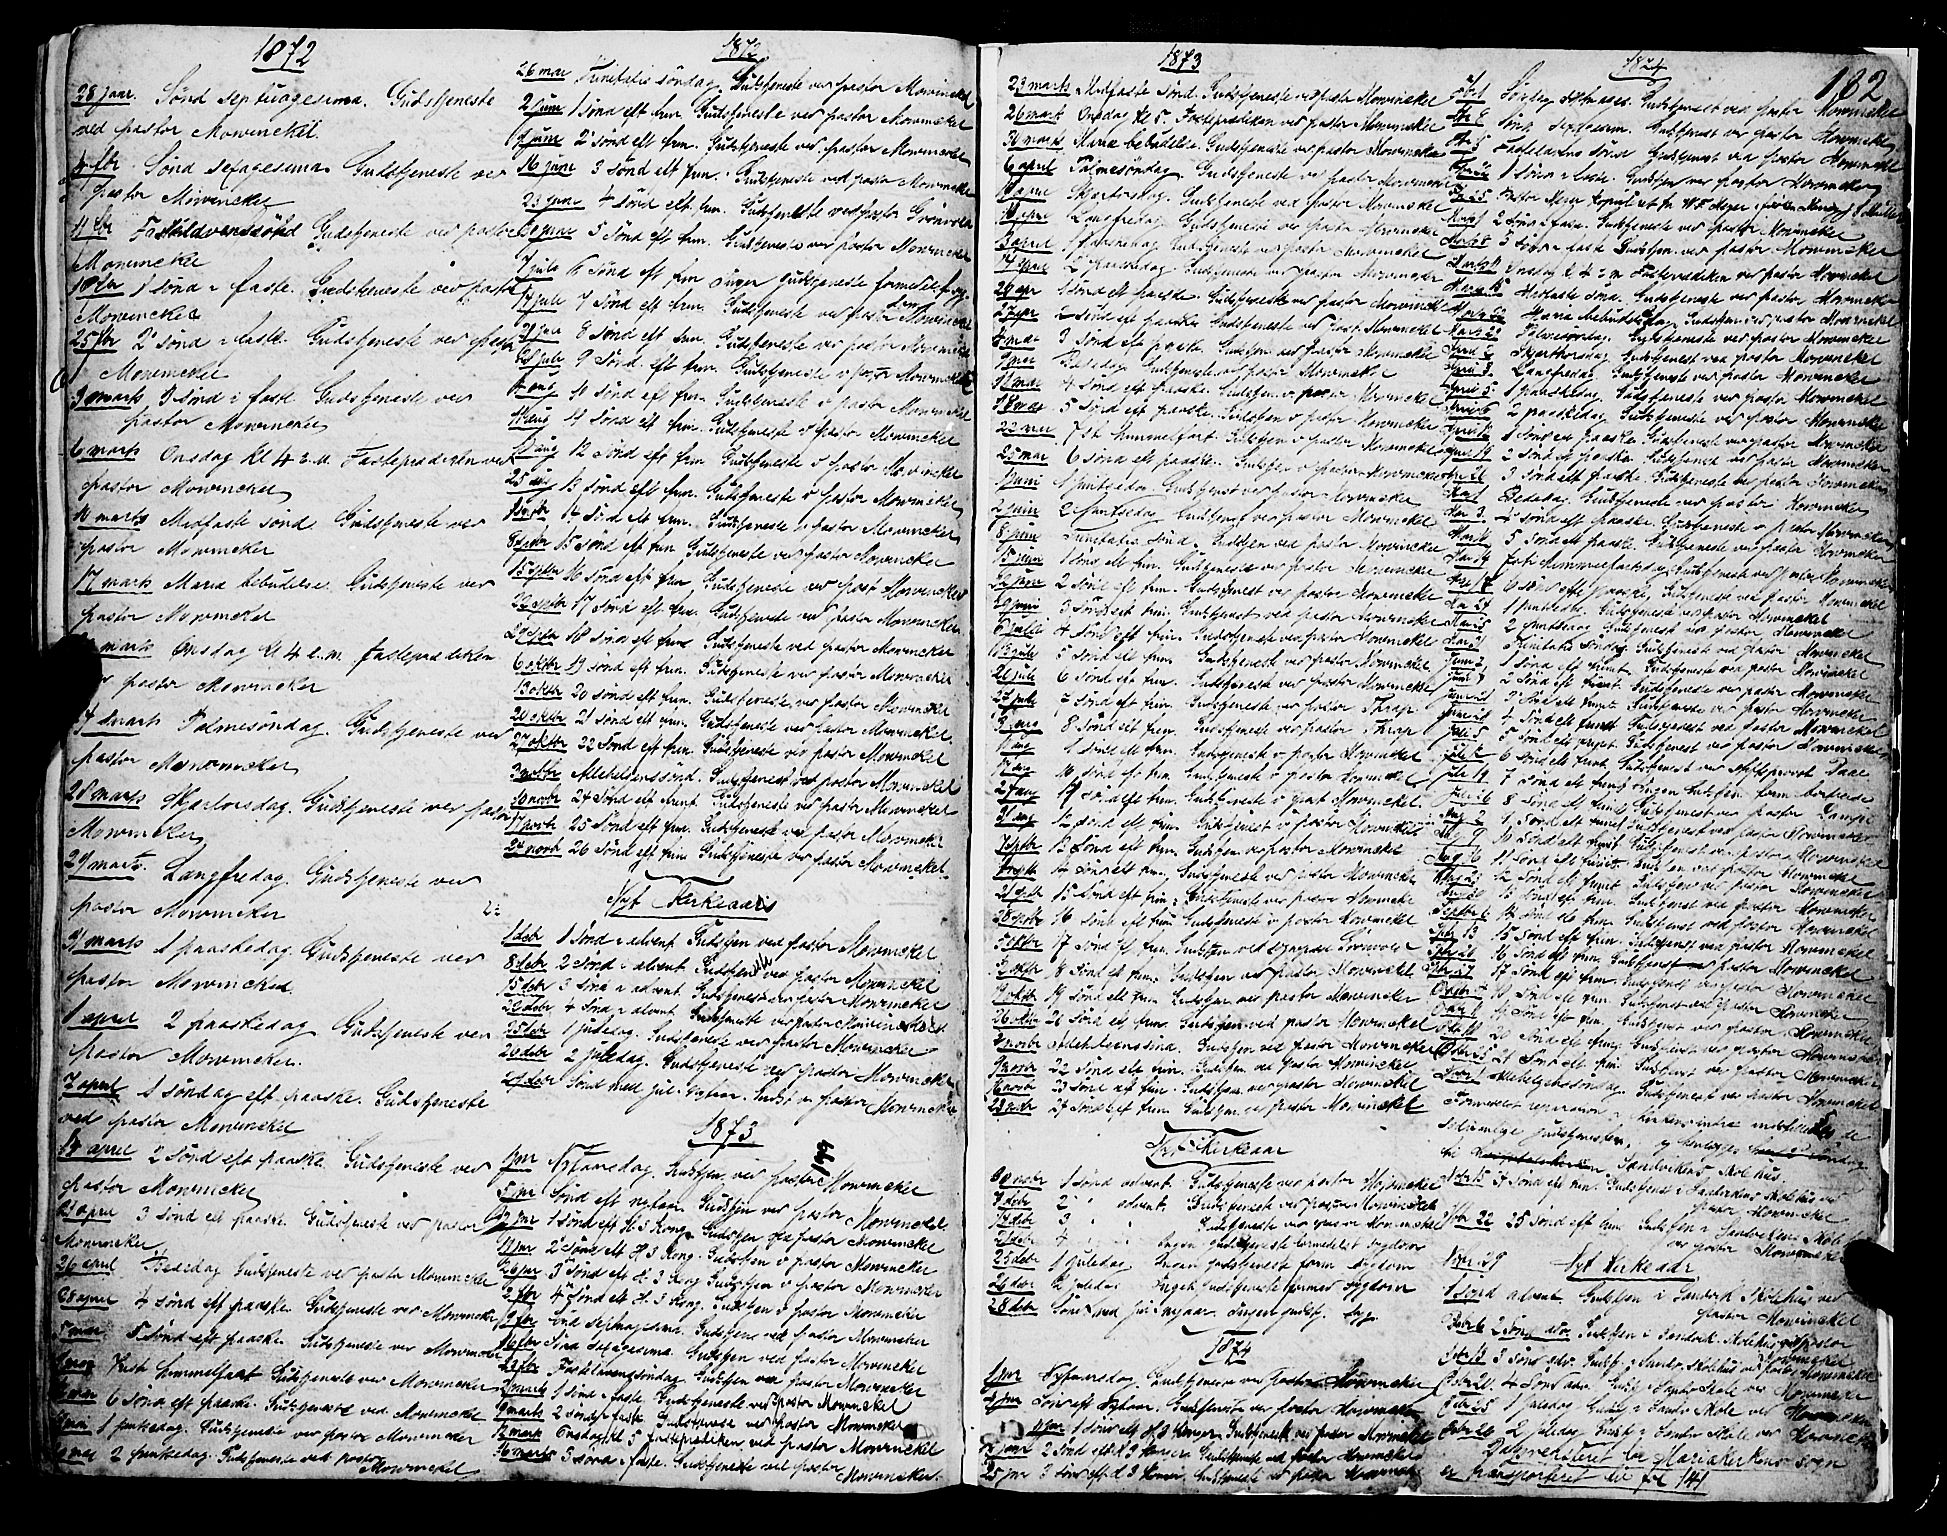 1872
28 jaar. Sønd septuagesima. Gudstjeneste
ved pastor Mowinckel.
4 fbr Sønd sexagesima. Gudstjeneste ved
pastor Mowinckel
11 fbr Gudstjeneste ved pastor
Mowinckel
18 fbr 1 sønd i faste. Gudstjeneste ved pastor
Mowinckel
25 fbr 2 sønd i faste. Gudstjeneste ved pastor
Mowinckel
3 marts 3 sønd i faste Gudstjeneste ved
pastor Mowinckel
6 marts Onsdag kl 4 e.m. Fasteprædiken ved
pastor Mowinckel
10 marts Midfaste sønd. Gudstjeneste ved
pastor Mowinckel
17 marts Maria bebudelse. Gudstjeneste ved
pastor Mowinckel
marts Onsdag kl 4 e.m. fasteprædiken
pastor Mowinckel
24 marts Palmesøndag. Gudstjeneste ved
pastor Mowinckel
28 marts Skjærtorsdag. Gudstjeneste ved pastor
Mowinckel
29 marts. Langfredag. Gudstjeneste ved
pastor Mowinckel
31 marts 1 paaskedag. Gudstjeneste ved
pastor Mowinckel.
1 april 2 paaskedag Gudstjeneste ved
pastor Mowinckel.
7 april 1 søndag eft paaske. Gudstjeneste
ved pastor Mowinckel
14 april 2 sønd eft paaske. Gudstjeneste ved
pastor Mowinckel
21 april 3 sønd eft paaske. Gudstjeneste ved pastor
Mowinckel
26 april Bededag Gudstjeneste ved pastor Mowinckel
28 april 4 sønd eft paaske. Gudstjeneste ved Mowinckel
5 mai 5 sønd eft paaske. Gudstjeneste ved Mowinckel
Kristi himmelfart Gudstjeneste ved Mowinckel
6 sønd eft paaske. Gudstjeneste ved Mowinckel
1 pintsedag. Gudstjeneste ved pastor Mowinckel
2 pintsedag. Gudstjeneste ved pastor
Mowinckel
1872
26 mai Trinitatis søndag. Gudstjeneste ved pastor Mowinckel
2 juni 1 sønd eft trin. Gudstjeneste ved pastor Mowinckel
9 juni 2 sønd eft trin. Gudstjeneste ved pastor Mowinckel
16 juni 3 sønd eft trin. Gudstjeneste ved pastor Mowinckel
23 juni 4 sønd eft. trin. Gudstjeneste ved pastor
30 juni 5 sønd eft trin. Gudstjeneste ved pastor Mowinckel
7 juli 6 sønd eft trin ingen gudstjeneste
14 juli 7 sønd eft trin. Gudstjeneste ved pastor Mowinckel
21 juli 8 sønd eft trin. Gudstjeneste ved pastor Mowinckel
28 juli 9 sønd. eft trin. Gudstjeneste v pastor Mowinckel
4 aug 10 sønd eft trin. Gudstjeneste v pastor Mowinckel
11 aug 11 sønd eft trin. Gudstjeneste v pastor Mowinckel
18 aug 12 sønd eft trin Gudstjeneste v pastor Mowinckel
25 aug 13 sønd eft trin. Gudstjeneste v pastor Mowinckel
1 septbr 14 sønd eft trin. Gudstjeneste v pastor Mowinckel
8 septbr 15 sønd eft trin Gudstjeneste ved pastor Mowinckel
15 septbr 16 sønd eft trin Gudstjeneste ved past Mowinckel
22 septbr 17 sønd eft trin. Gudstjeneste ved pastor Mowinckel
29 septbr 18 sønd eft trin Gudstjeneste ved pastor Mowinckel
6 oktbr 19 sønd eft trin. Gudstjeneste ved pastor Mowinckel
13 oktbr 20 sønd eft trin. Gudstjeneste ved pastor Mowinckel
20 oktbr 21 sønd eft trin. Gudstjeneste ved pastor Mowinckel.
27 oktbr 22 sønd eft trin. Gudstjeneste ved pastor Mowinckel
3 novbr Allehelgenssønd. Gudstjeneste ved pastor Mowinckel
10 novbr 24 sønd eft trinit Gudstjeneste ved pastor Mowinckel
17 novbr 25 sønd eft trin. Gudstjeneste ved pastor Mowinckel
24 novbr 26 sønd eft trin Gudstjeneste ved pastor Mowinckel.
Nyt Kirkeaar
1 debr 1 sønd i advent. Gudstjen ved pastor Mowinckel
8 debr 2 sønd i advent Gudstjen ved pastor Mowinckel
15 debr 3 sønd i advent. Gudstjeneste ved pastor Mowinckel
22 debr 4 sønd i advent Gudstjeneste ved pastor Mowinckel
25 debr 1 juledag. Gudstjeneste ved pastor Mowinckel
26 debr 2 juledag. Gudstjeneste ved pastor Mowinckel
29 debr Sønd med jul. Nytaar. Gudst v pastor Mowinckel
1873
199
1 jnr Nytaarsdag. Gudstjen. ved pastor Mowinckel
5 jnr Sønd eft nytaar. Gudstjen ved pastor Mowinckel
12 jnr 1 sønd eft H. 3 Kong. Gudstjen ved pastor Mowinckel
19 jnr 2 sønd eft H 3 Kong. Gudstjen v pastor Mowinckel
26 jnr 3 sønd eft H. 3 Kong Gudstjen v pastor Mowinckel
2 fbr 4 sønd eft H. 3 Kong. Gudstjen v pastor Mowinckel
9 fbr sønd septuagesima. Gudstjens ved pastor Mowinckel
16 fbr Sønd sexagesima. Gudstjen ved pastor Mowinckel
23 fbr Fastelavnssøndag. Gudstjen ved pastor Mowinckel
2 marts 1 sønd i faste. Gudstjeneste ved pastor Mowinckel
9 marts 2 sønd i faste Gudstjeneste ved pastor Mowinckel
12 marts Onsdag kl 5 Fasteprædiken ved pastor Mowinckel
16 marts 3 sønd i faste. Gudstjeneste ved pastor
Mowinckel.
1873
23 marts Midfaste sønd. Gudstjeneste ved pastor Mowinckel
26 marts Onsdag kl 5. Fasteprædiken ved pastor Mowinckel
30 marts Maria bebudelse. Gudstjeneste ved pastor Mowinckel
6 april Palmesøndag. Gudstjeneste ved pastor Mowinckel
10 april Skjærtorsdag. Gudstjeneste ved pastor Mowinckel
11 april Langfredag. Gudstjeneste ved pastor Mowinckel
13 april 1 paaskedag Gudstjeneste ved pastor Mowinckel
14 april 2 paaskedag. Gudstjeneste ved pastor Mowinckel
20 apr 1 sønd eft paaske. Gudstjeneste ved pastor Mowinckel
27 apr 2 sønd eft paaske Gudstjeneste ved past. Mowinckel
4 mai 3 sønd eft paaske. Gudstjen ved pastor Mowinckel
9 mai Bededag. Gudstjeneste ved pastor Mowinckel
11 mai 4 sønd eft paaske. Gudstjen ved pastor Mowinckel
18 mai 5 sønd eft paaske. Gudstjen v pastor Mowinckel
22 mai Kr himmelfart. Gudstjen v pastor Mowinckel
25 mai 6 sønd eft paaske. Gudstjen v pastor Mowinckel
1 juni 1 pintsedag. Gudstjenst ved pastor Mowinckel
2 juni 2 pintsedag Gudstjenst ved pastor Mowinckel
8 juni Trinitatis sønd. Gudstjen ved pastor Mowinckel
15 juni 1 sønd eft trin. Gudstjeneste ved pastor Mowinckel
22 juni 2 sønd eft trin. Gudstjenest ved pastor Mowinckel
29 juni 3 sønd eft trin. Gudstjenest ved pastor Mowinckel
6 juli 4 sønd eft trin. Gudstjeneste ved pastor Mowinckel
13 juli 5 sønd eft trin. Gudstjeneste ved pastor Mowinckel
20 juli 6 sønd eft trin. Gudstjeneste ved pastor Mowinckel
27 juli 7 sønd eft trin. Gudstjeneste ved pastor
3 aug 8 sønd eft trin. Gudstjeneste ved pastor
10 aug 9 sønd eft trin. Gudstjeneste v pastor Mowinckel
17 aug 10 sønd eft trin. Gudstjeneste v pastor Mowinckel
24 aug 11 sønd eft trin. Gudstjeneste v past Mowinckel
31 aug 12 sønd eft trin. Gudstjenest v pastor Mowinckel
7 septbr 13 sønd eft trin. Gudstjen v pastor Mowinckel
14 septbr 14 sønd eft trin. Gudstjeneste ved pastor Mowinckel
21 septbr 15 sønd eft trin. Gudstjeneste ved pastor Mowinckel
28 septbr 16 sønd eft trin Gudstjeneste v pastor Mowinckel
5 oktbr 17 sønd eft trin. Gudstjen ved
12 oktbr 18 sønd eft trin. Gudstjen ved pastor Mowinckel
19 oktbr 19 sønd eft trin. Gudstjen ved pastor Mowinckel
26 oktbr 20 sønd eft trin. Gudstjen ved pastor Mowinckel
2 novbr Allehelgenssønd. Gudstjen ved pastor Mowinckel
9 novbr 22 sønd eft trin. Gudstjen ved pastor Mowinckel
16 novbr 23 sønd eft trin. Gudstjen ved pastor Mowinckel
23 novbr 24 sønd eft trin. Gudstjen ved pastor Mowinckel
Nyt Kirkeaar
30 novbr 1 sønd advent. Gudstjeneste ved pastor Mowinckel
7 debr 2 " advent. Gudstjeneste ved pastor Mowinckel
14 debr 3 " " Gudstjeneste ved pastor Mowinckel
21 debr 4 " " Ingen gudstjeneste formedelst sygdom
25 debr 1 juledag Ingen gudstjeneste form sygdom
26 debr 2 juledag Ingen gudstjeneste formed sygdom
28 debr Sønd med jul nyaar. Ingen gudstj. syg.
1874
1 jnr Nytaarsdag. Gudstjeneste ved pastor Mowinckel
4 jnr Sønd eft Nytaar. Gudstjeneste ved pastor Mowinckel
11 jnr 1 sønd eft H 3 Konger. Gudstjenest ved pastor Mowinckel
18 jnr 2 sønd eft H 3 Konger Gudstjeneste ved pastor Mowinckel
25 jnr 3 sønd eft H 3 Konger. Gudstjeneste ved pastor Mowinckel
1874
182
Fbr 1 Sønd. Gudstjenest ved pastor Mowinckel
Fbr 8 Sønd sexagesim. Gudstjenst ved pastor Mowinckel
Fbr 15 Fastelavns sønd Gudstjenest ved pastor Mowinckel
Fbr 22 1 sønd i faste. Gudstjen ved pastor Mowinckel
Fbr 25 Pastor
Marts 1 2 sønd i faste. Gudstjenest ved pastor Mowinckel
Marts 8 3 sønd i faste Gudstjen. ved pastor Mowinckel
Marts 11 Onsdag kl 4 e m Fasteprædiken ved pastor Mowinckel
Marts 15 Midfaste sønd. Gudstjeneste ved pastor Mowinckel
Marts 22 Maria bebudelsesdag. Gudstjen ved pastor Mowinckel
Marts 29 Palmesøndag. Gudstjeneste ved pastor Mowinckel
April 2 Skjærtorsdag. Gudstjenest ved pastor Mowinckel
April 3 Langfredag. Gudstjeneste ved pastor Mowinckel
April 5 1 paaskedag. Gudstjeneste ved pastor Mowinckel
April 6 2 paaskedag. Gudstjeneste ved pastor Mowinckel
April 12 1 sønd eft paaske. Gudstjeneste ved pastor Mowinckel
April 19 2 sønd eft paaske. Gudstjenest ved pastor Mowinckel
April 26 3 sønd eft paaske. Gudstjeneste ved pastor Mowinckel
Mai 1 Bededag. Gudstjeneste ved pastor Mowinckel
Mai 3 4 sønd eft paaske. Gudstjeneste v pastor Mowinckel
Mai 10 5 sønd eft paaske. Gudstjeneste ved pastor Mowinckel
Mai 14 Kristi himmelfartsdag Gudstjeneste ved pastor Mowinckel
Mai 17 6 sønd efte paaske. Gudstjeneste ved pastor Mowinckel
Mai 24 1 pintsedag. Gudstjenest ved pastor Mowinckel
Mai 25 2 pintsedag Gudstjenest ved pastor Mowinckel
Mai 31 Trinitatis søndag. Gudstjenest ved pastor Mowinckel
Juni 7 1 sønd eft trinit. Gudstjeneste ved pastor Mowinckel
Juni 14 2 sønd eft trinit. Gudstjeneste ved pastor Mowinckel
Juni 21 3 sønd eft trinit. Gudstjeneste ved pastor Mowinckel
Juni 28 4 sønd eft trinit Gudstjenest ved pastor Mowinckel
Juli 5 5 sønd eft trinit Gudstjenest ved pastor Mowinckel
Juli 12 6 sønd eft trinit Gudstjenest ved Stiftsprovst Daae
Juli 19 7 sønd eft trinit ingen Gudstjen. form
Juli 26 8 sønd eft trinit Gudstjenest ved pastor
Aug 2 9 sønd eft trinit Gudstjenest ved pastor Mowinckel
Aug 9 10 sønd eft trinit Gudstjenest ved pastor Mowinckel
Aug 16 11 sønd eft trinit Gudstjen ved pastor Mowinckel
Aug 23 12 sønd eft trinit Gudstjenest ved pastor Mowinckel
Aug 30 13 sønd eft trin. Gudstjenest ved pastor Mowinckel
Septbr 6 14 sønd eft trin. Gudstjenest ved pastor Mowinckel
Sptbr 13 15 sønd eft trin. Gudstjenest ved pastor Mowinckel
Sptbr 20 16 sønd eft trin. Gudstjenest ved pastor Mowinckel
Sptbr 27 17 sønd eft trin. Gudstjenest ved pastor Mowinckel
18 sønd eft trin. Gudstjenest ved pastor Mowinckel
19 sønd eft trin. Gudstjenest ved pastor Mowinckel
20 sønd eft trin. Gudstjenest ved pastor Mowinckel
21 sønd eft trin Gudstjenest ved pastor Mowinckel
Allehelgenssøndag. Gudstjenest ved pastor Mowinckel
Formedelst reparation i kirkens indre
gudstjenesten
til Sandvikens Skolehus.
Gudstjenest i Sandvikens Skolehus ved
pastor Mowinckel
Nvbr 22 25 sønd eft trin Gudstjen i Sandvikens Skoleh
ved pastor Mowinckel
Novbr 29 Nyt Kirkeaar
1 sønd advent. Gudstjen i Sandvik Skolehus ved
pastor Mowinckel
Debr 6 2 sønd adv. Gudstjen i Sandvik Skolehus ved pastor
Mowinckel
Debr 13 3 sønd adv. Gudstj. i Sandv Skolehus ved pastor Mowinckel
Debr 20. 4 sønd adv. Gudstj i Sandv Skole ved Mowinckel
Debr 25 1 juledag Gudstj i Sandv Skole ved Mowinckel
Debr 26 2 juledag Gudstj i Sandv Skole ved Mowinckel
Dagsregisteret for Mariakirkens sogn
er transporteret til fol 141